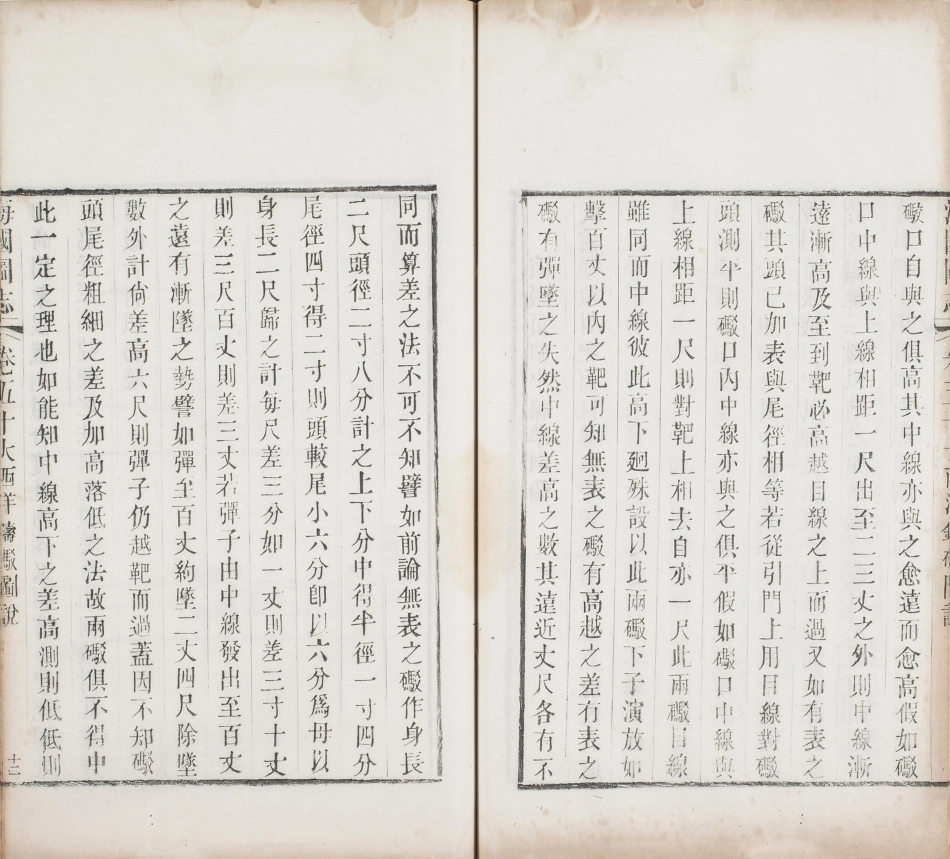 礮口自與之俱高其中線亦與之愈遠而愈高假如礮
口中線與上線相距一尺出至二三丈之外則中線漸
遠漸高及至到靶必高越目線之上而過又如有表之
礮其頭已加表與尾徑相等若從引門上用目線對
頭測平則礮口內中線亦與之俱平假如礮口中線與
上線相距一尺則對靶上相去自亦一尺此兩礮目線
雖同而中線彼此高下迥殊設以此兩礮下子演放如
擊百丈以內之靶可知無表之礮有高越之差有表之
礮有彈墜之失然中線差高之數其遠近丈尺各有不
同而算差之法不可不知譬如前論無表之礮作身長
二尺頭徑二寸八分計之上下分中得半徑一寸四分
尾徑四寸得二寸則頭較尾小六分卽以六分爲母以
身長二尺歸之計每尺差三分如一丈則差三寸十丈
則差三尺百丈則差三丈若彈子由中線發出至百丈
之遠有漸墜之勢譬如彈至百丈約墜二丈四尺除墜
數外計尙差高六尺則彈子仍越靶而過蓋因不知礮
頭尾徑粗細之差及加高落低之法故兩礮俱不得中
此一定之理也如能知中線高下之差高測則低低則
海國圖志 卷五十六 西洋鑄礮圖說 十二